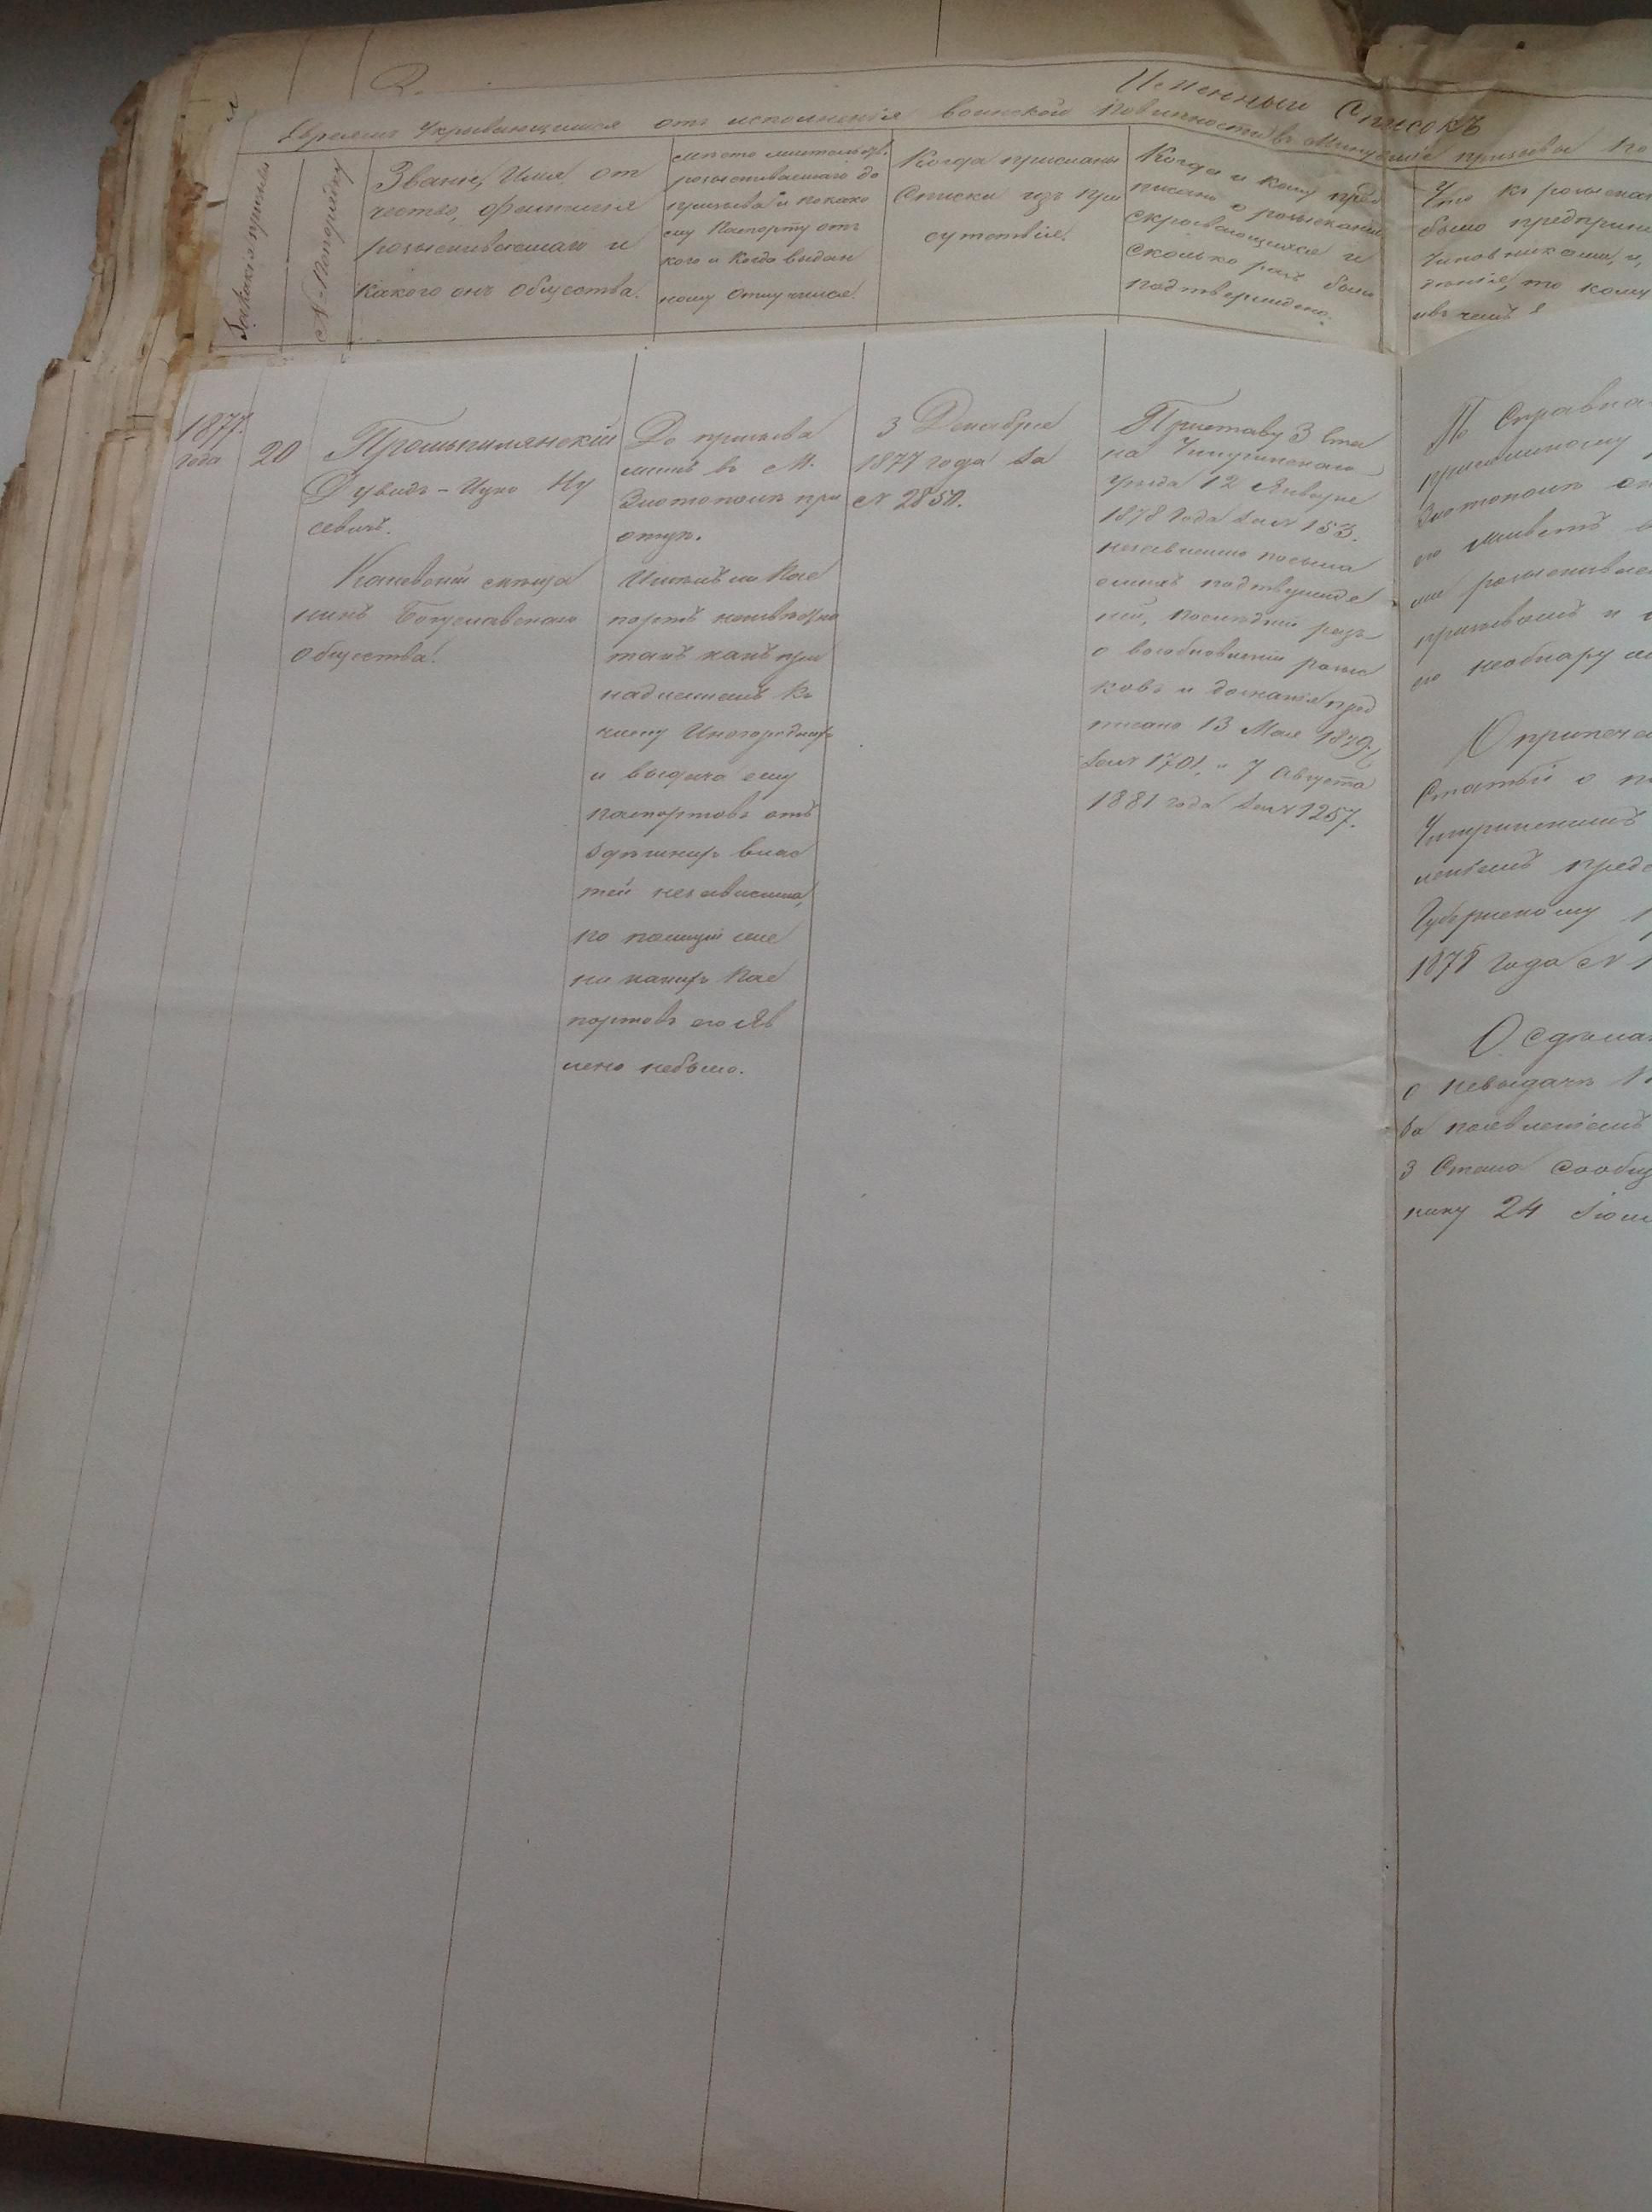 Именный Списокъ
Евреямъ Укрывающимся отъ исполненія воинской повинности въ призывы по
За какой призывъ
№ По порядку
Званіе, Имя, от
чество, фамилія
розыскиваемаго и
Какого онъ общества.
Место жительства
розыскиваемаго до
призыва и по како
му Паспорту отъ
кого и Когда выдан
ному Отлучился.
Когда присланы
Списки изъ При
сутствія.
Когда и кому пред
писано о розысканіи
скрывающихся и
сколько разъ было
подтверждено.
Что къ розыскан
было предприня
чиновниками, и
то кому
и въ чемъ
1877
года
20
Дувидъ-Ицко Ну
севичъ.
Каневскій мѣща
нинъ Богуславскаго
общества.
До призыва
жилъ въ М.
Златополѣ при
отцѣ.
Имѣлъ ли Пас
портъ неизвѣстно
такъ какъ при
надлежитъ къ
числу Иногороднихъ
и выдача ему
паспортовъ отъ
здѣшнихъ влас
тей независила,
но полиціи ни
какихъ Пас
портовъ его яв
лено небыло.
3 Декабря
1877 года за
№ 2850.
Приставу 3 Ста
на Чигиринскаго
уѣзда 12 Января
1878 года за № 153.
подтвержде
ній, послѣдній разъ
о возобновленіи розыс
ковъ и дознанія пред
писано 13 Мая 1879 г.
за № 1701, и 7 Августа
1881 года за № 1257.
По Справка
Златополѣ от
его живетъ в
не розыскивае
призывомъ и
его необнаруже
О припеча
Статьи о
Чигиринскимъ
леніемъ предс
Губернскому
1878 года №
О сдѣла
о невыдачѣ
за
3 Стана сообщ
нику 24 Іюн